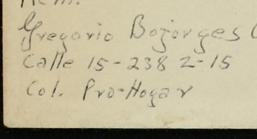 Rem.
Gregorio Bojorges C
Calle 15-238 Z-15
Col. Pro-Hogar